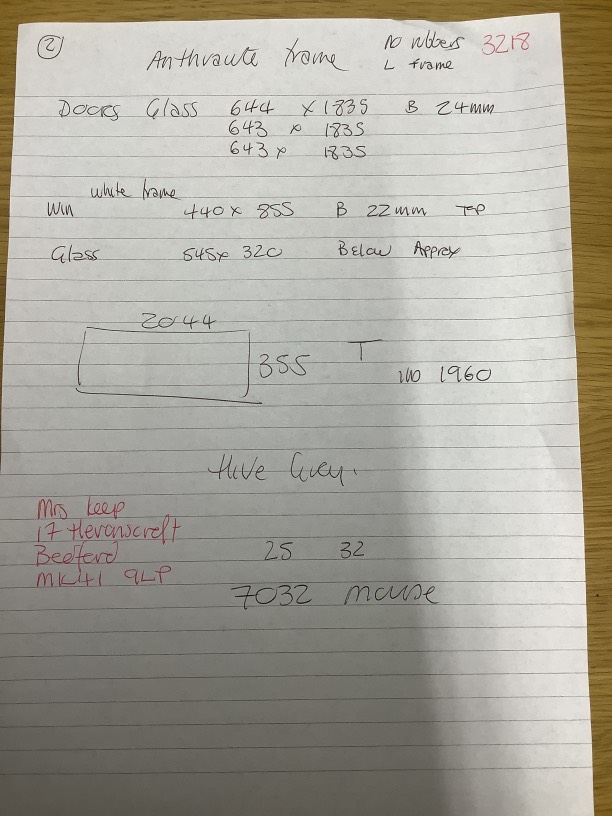 2
Anthracite frame
No rubbers 3218
L frame
Doors Glass 644 x 1835 B 24mm
643 x 1835
643 x 1835
white frame
Win 440 x 855 B 22mm Top
Glass 545x 320 Below Approx
2044
355 T
1960
Grey.
Mrs Keep
17 Heronscroft
Bedford
MK41 9LP
25 32
7032 mouse